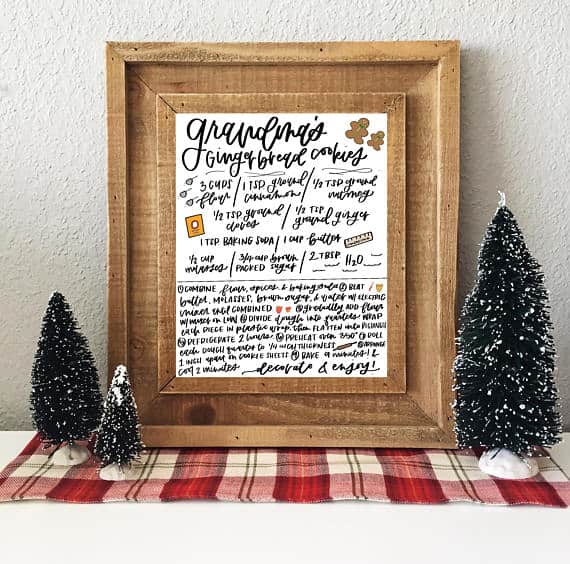 grandma's
Gingerbread cookies
3 CUPS flour / 1 TSP ground cinnamon / 1/2 TSP ground nutmeg
1/2 TSP ground cloves / 1/2 TSP ground ginger
1 TSP BAKING SODA / 1 CUP butter
1/2 CUP molasses / 3/4 CUP brown PACKED sugar / 2 TBSP H2O
① COMBINE flour, spices, & baking soda ② BEAT
butter, MOLASSES, brown sugar, & water w/ ELECTRIC
mixer until COMBINED ③ gradually add flour
w/ mixer on LOW ④ DIVIDE dough into quarters WRAP
each PIECE in plastic wrap, then FLATTEN into
⑤ REFRIGERATE 2 hours ⑥ PREHEAT oven 350° ⑦ ROLL
each DOUGH quarter to 1/4 INCH THICKNESS ⑧ ARRANGE
1 INCH apart on COOKIE SHEETS ⑨ BAKE 9 minutes! &
cool 2 minutes decorate & enjoy!